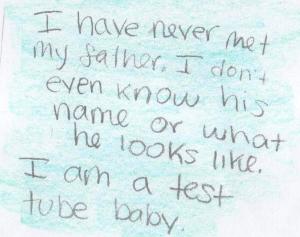 I have never met
my father. I don't
even know his
name or what
he looks like.
I am a test
tube baby.